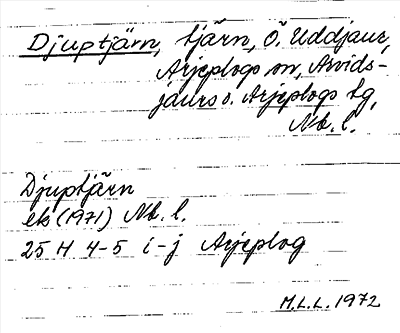 Djuptjärn, tjärn, Ö. Uddjaur,
Arjeplogs sn, Arvids-
jaurs o. Arjeplogs tg,
Nb. l.
Djuptjärn
ek (1971) Nb. l.
25 H 4-5 i-j Arjeplog
M.L.L. 1972